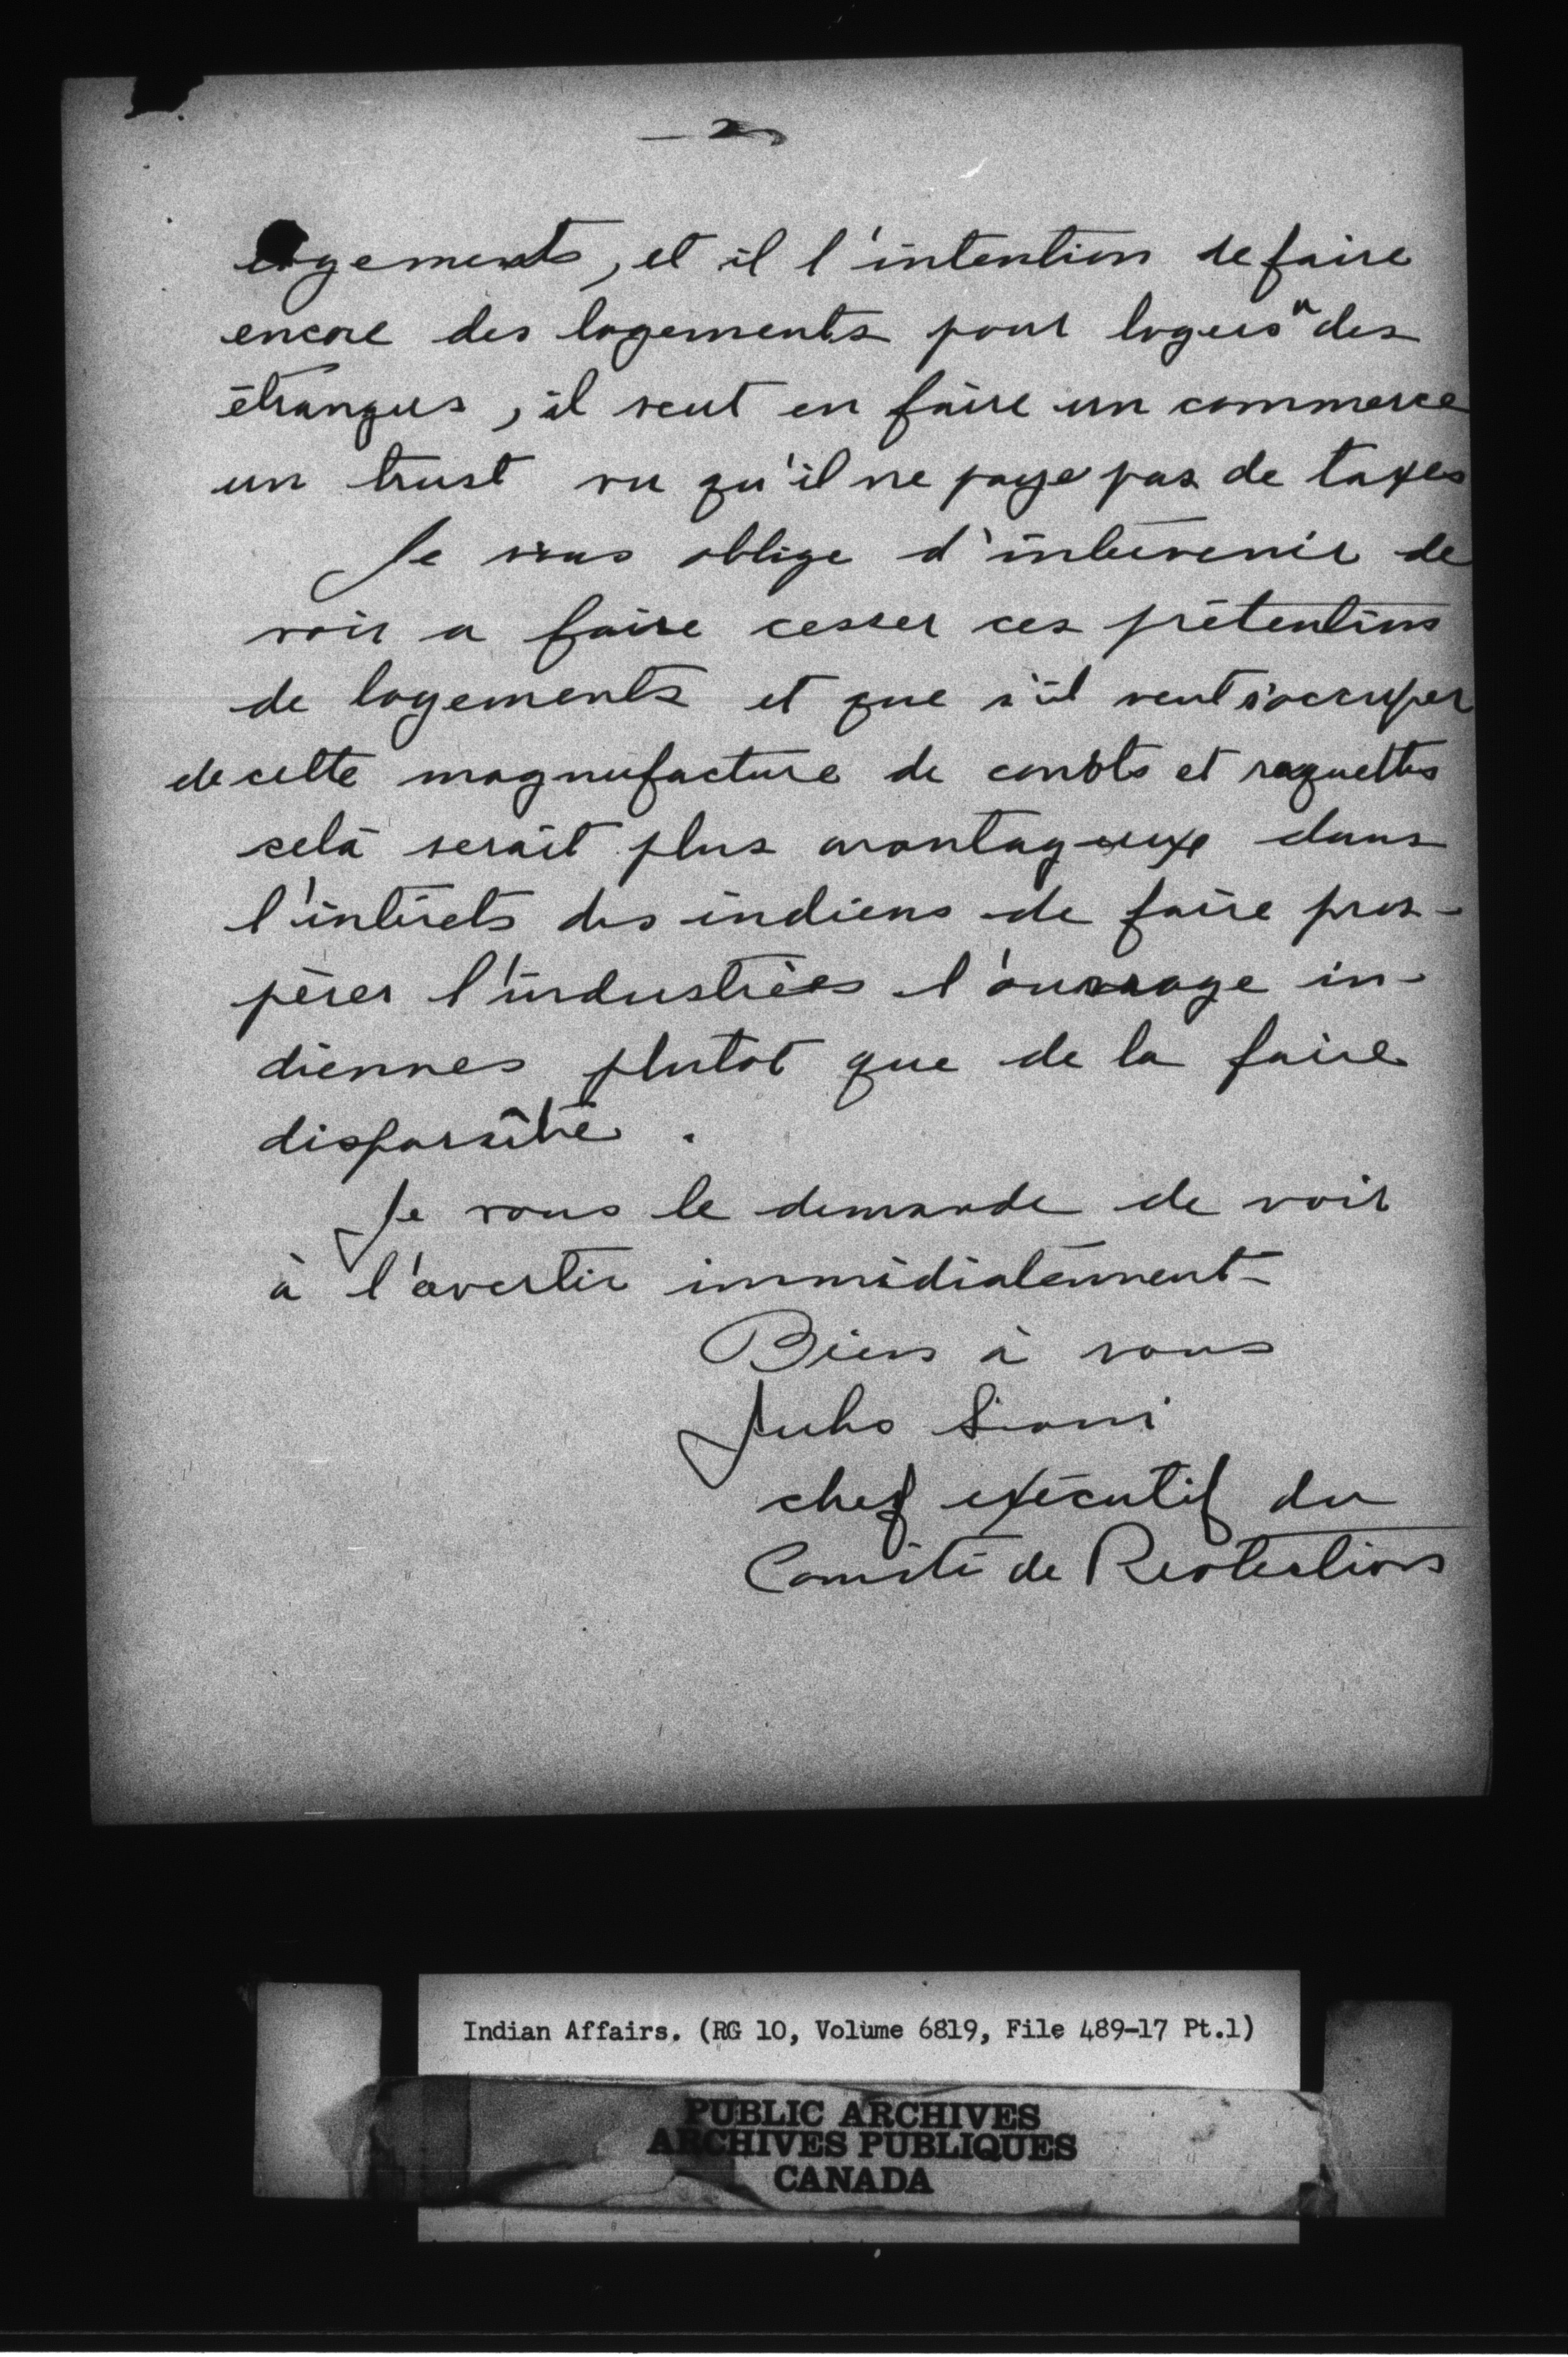 — 2
logements, et il l'intention de faire
encore des logements pour logers des
étrangers, il veut en faire un commerce
un trust vu qu'il ne paye pas de taxes
Je vous oblige d'intervenir de
voir a faire cesser ces prétentions
de logements et que s'il veut s'occuper
de cette magnufacture de canots et raquettes
celà serait plus avantageuxe dans
l'intérets des indiens de faire pros-
pérer l'industries l'ouvrage in-
diennes plutot que de la faire
disparaître.
Je vous le demande de voir
à l'avertir immédiatement
Biens à vous
Jules Sioui
chef exécutif du
Comité de Protections
Indian Affairs. (RG 10, Volume 6819, File 489-17 Pt.1)
PUBLIC ARCHIVES
ARCHIVES PUBLIQUES
CANADA